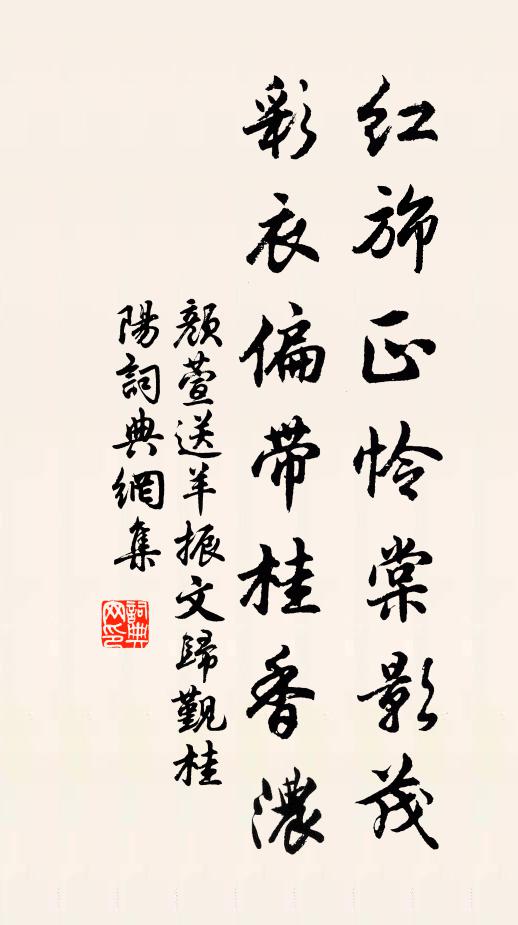 红旆正怜棠影茂
彩衣偏带桂香濃
顏萱送羊振文歸覲桂
陽詞典網集
詞典网印